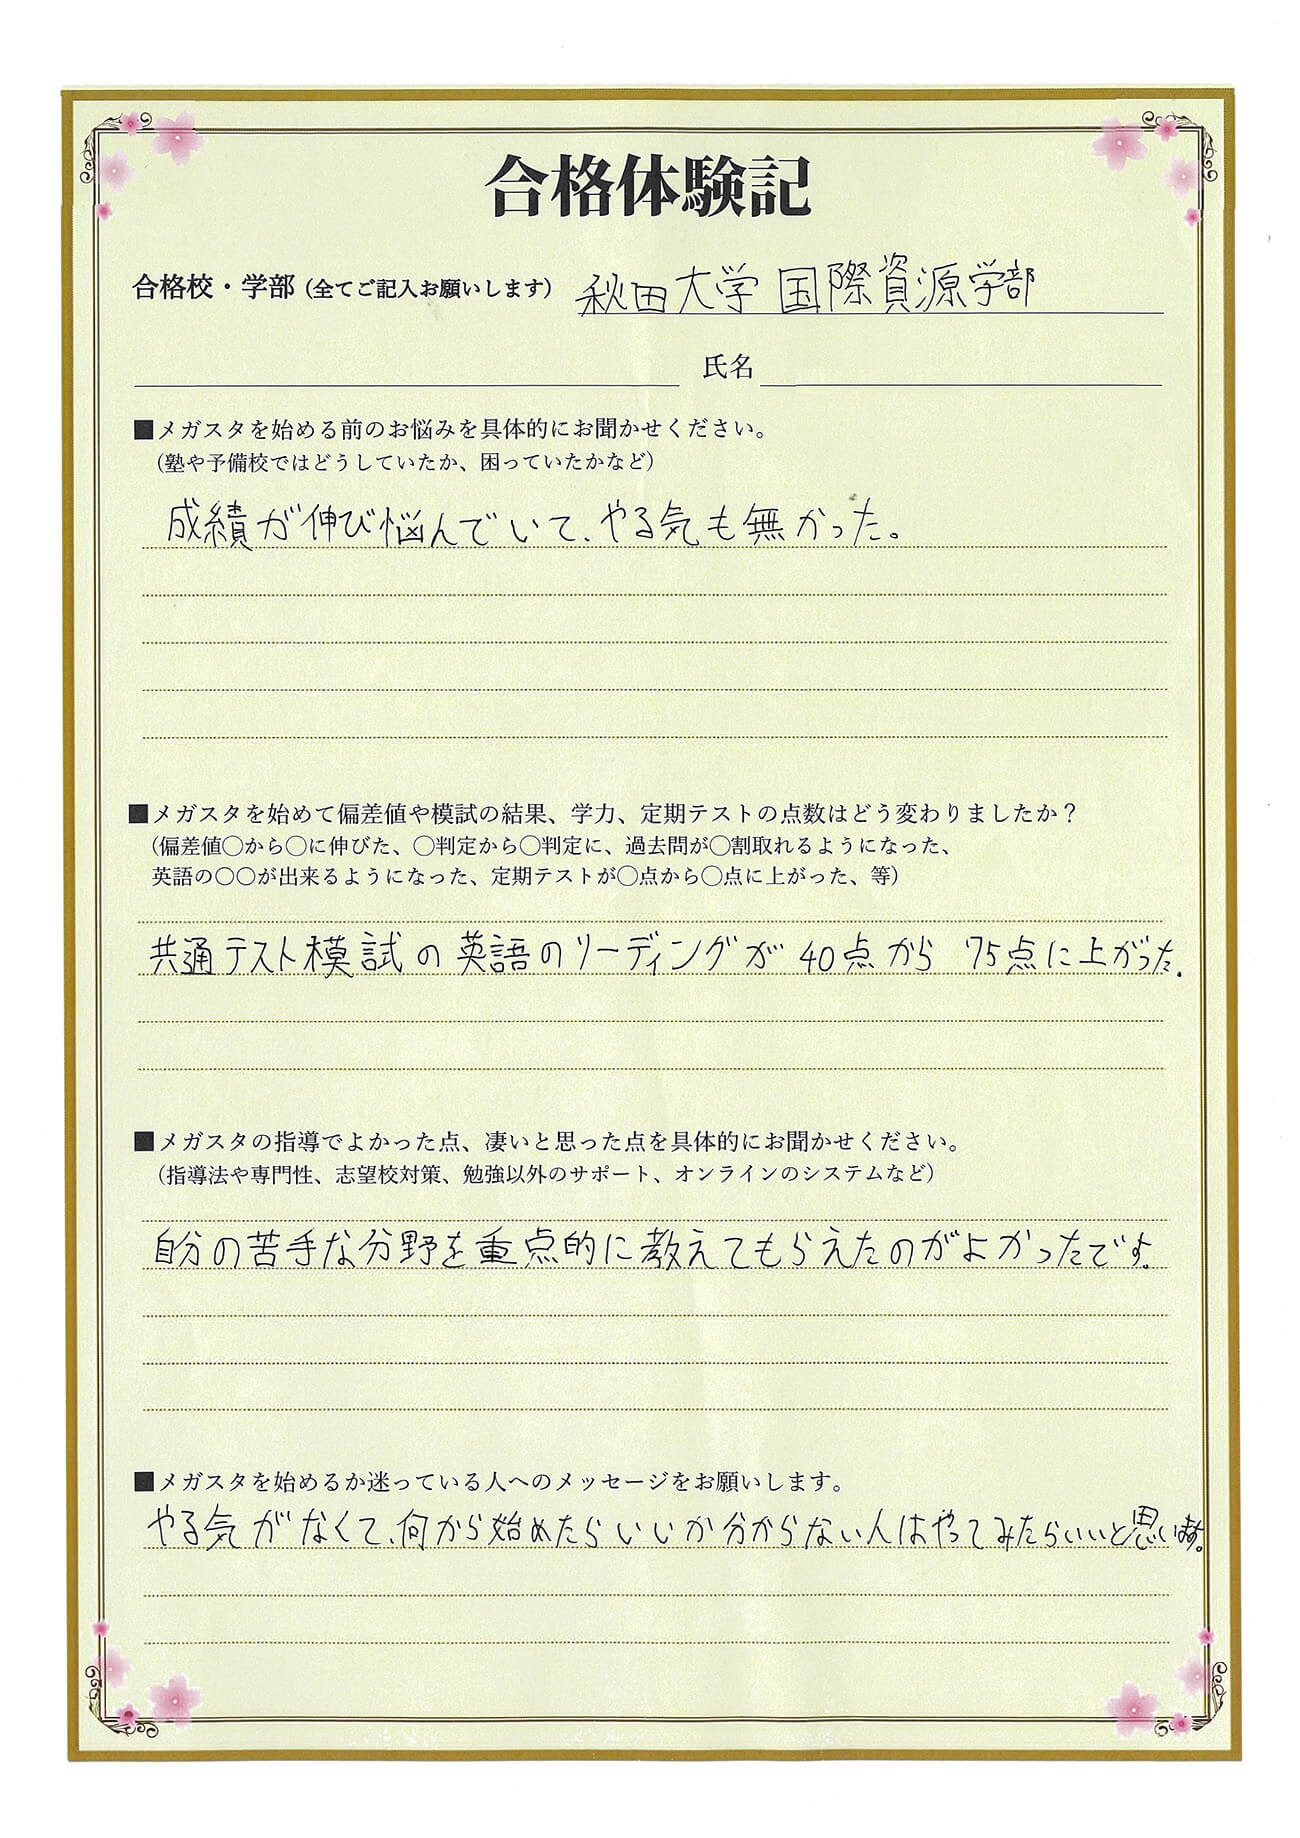 合格体験記
合格校・学部（全てご記入お願いします） 秋田大学 国際資源学部
氏名
■メガスタを始める前のお悩みを具体的にお聞かせください。
（塾や予備校ではどうしていたか、困っていたかなど）
成績が伸び悩んでいて、やる気も無かった。
■メガスタを始めて偏差値や模試の結果、学力、定期テストの点数はどう変わりましたか？
（偏差値〇から〇に伸びた、〇判定から〇判定に、過去問が〇割取れるようになった、
英語の〇〇が出来るようになった、定期テストが〇点から〇点に上がった、等）
共通テスト模試の英語のリーディングが40点から 75点に上がった.
■メガスタの指導でよかった点、凄いと思った点を具体的にお聞かせください。
（指導法や専門性、志望校対策、勉強以外のサポート、オンラインのシステムなど）
自分の苦手な分野を重点的に教えてもらえたのがよかったです。
■メガスタを始めるか迷っている人へのメッセージをお願いします。
やる気がなくて、何から始めたらいいか分からない人はやってみたらいいと思います。